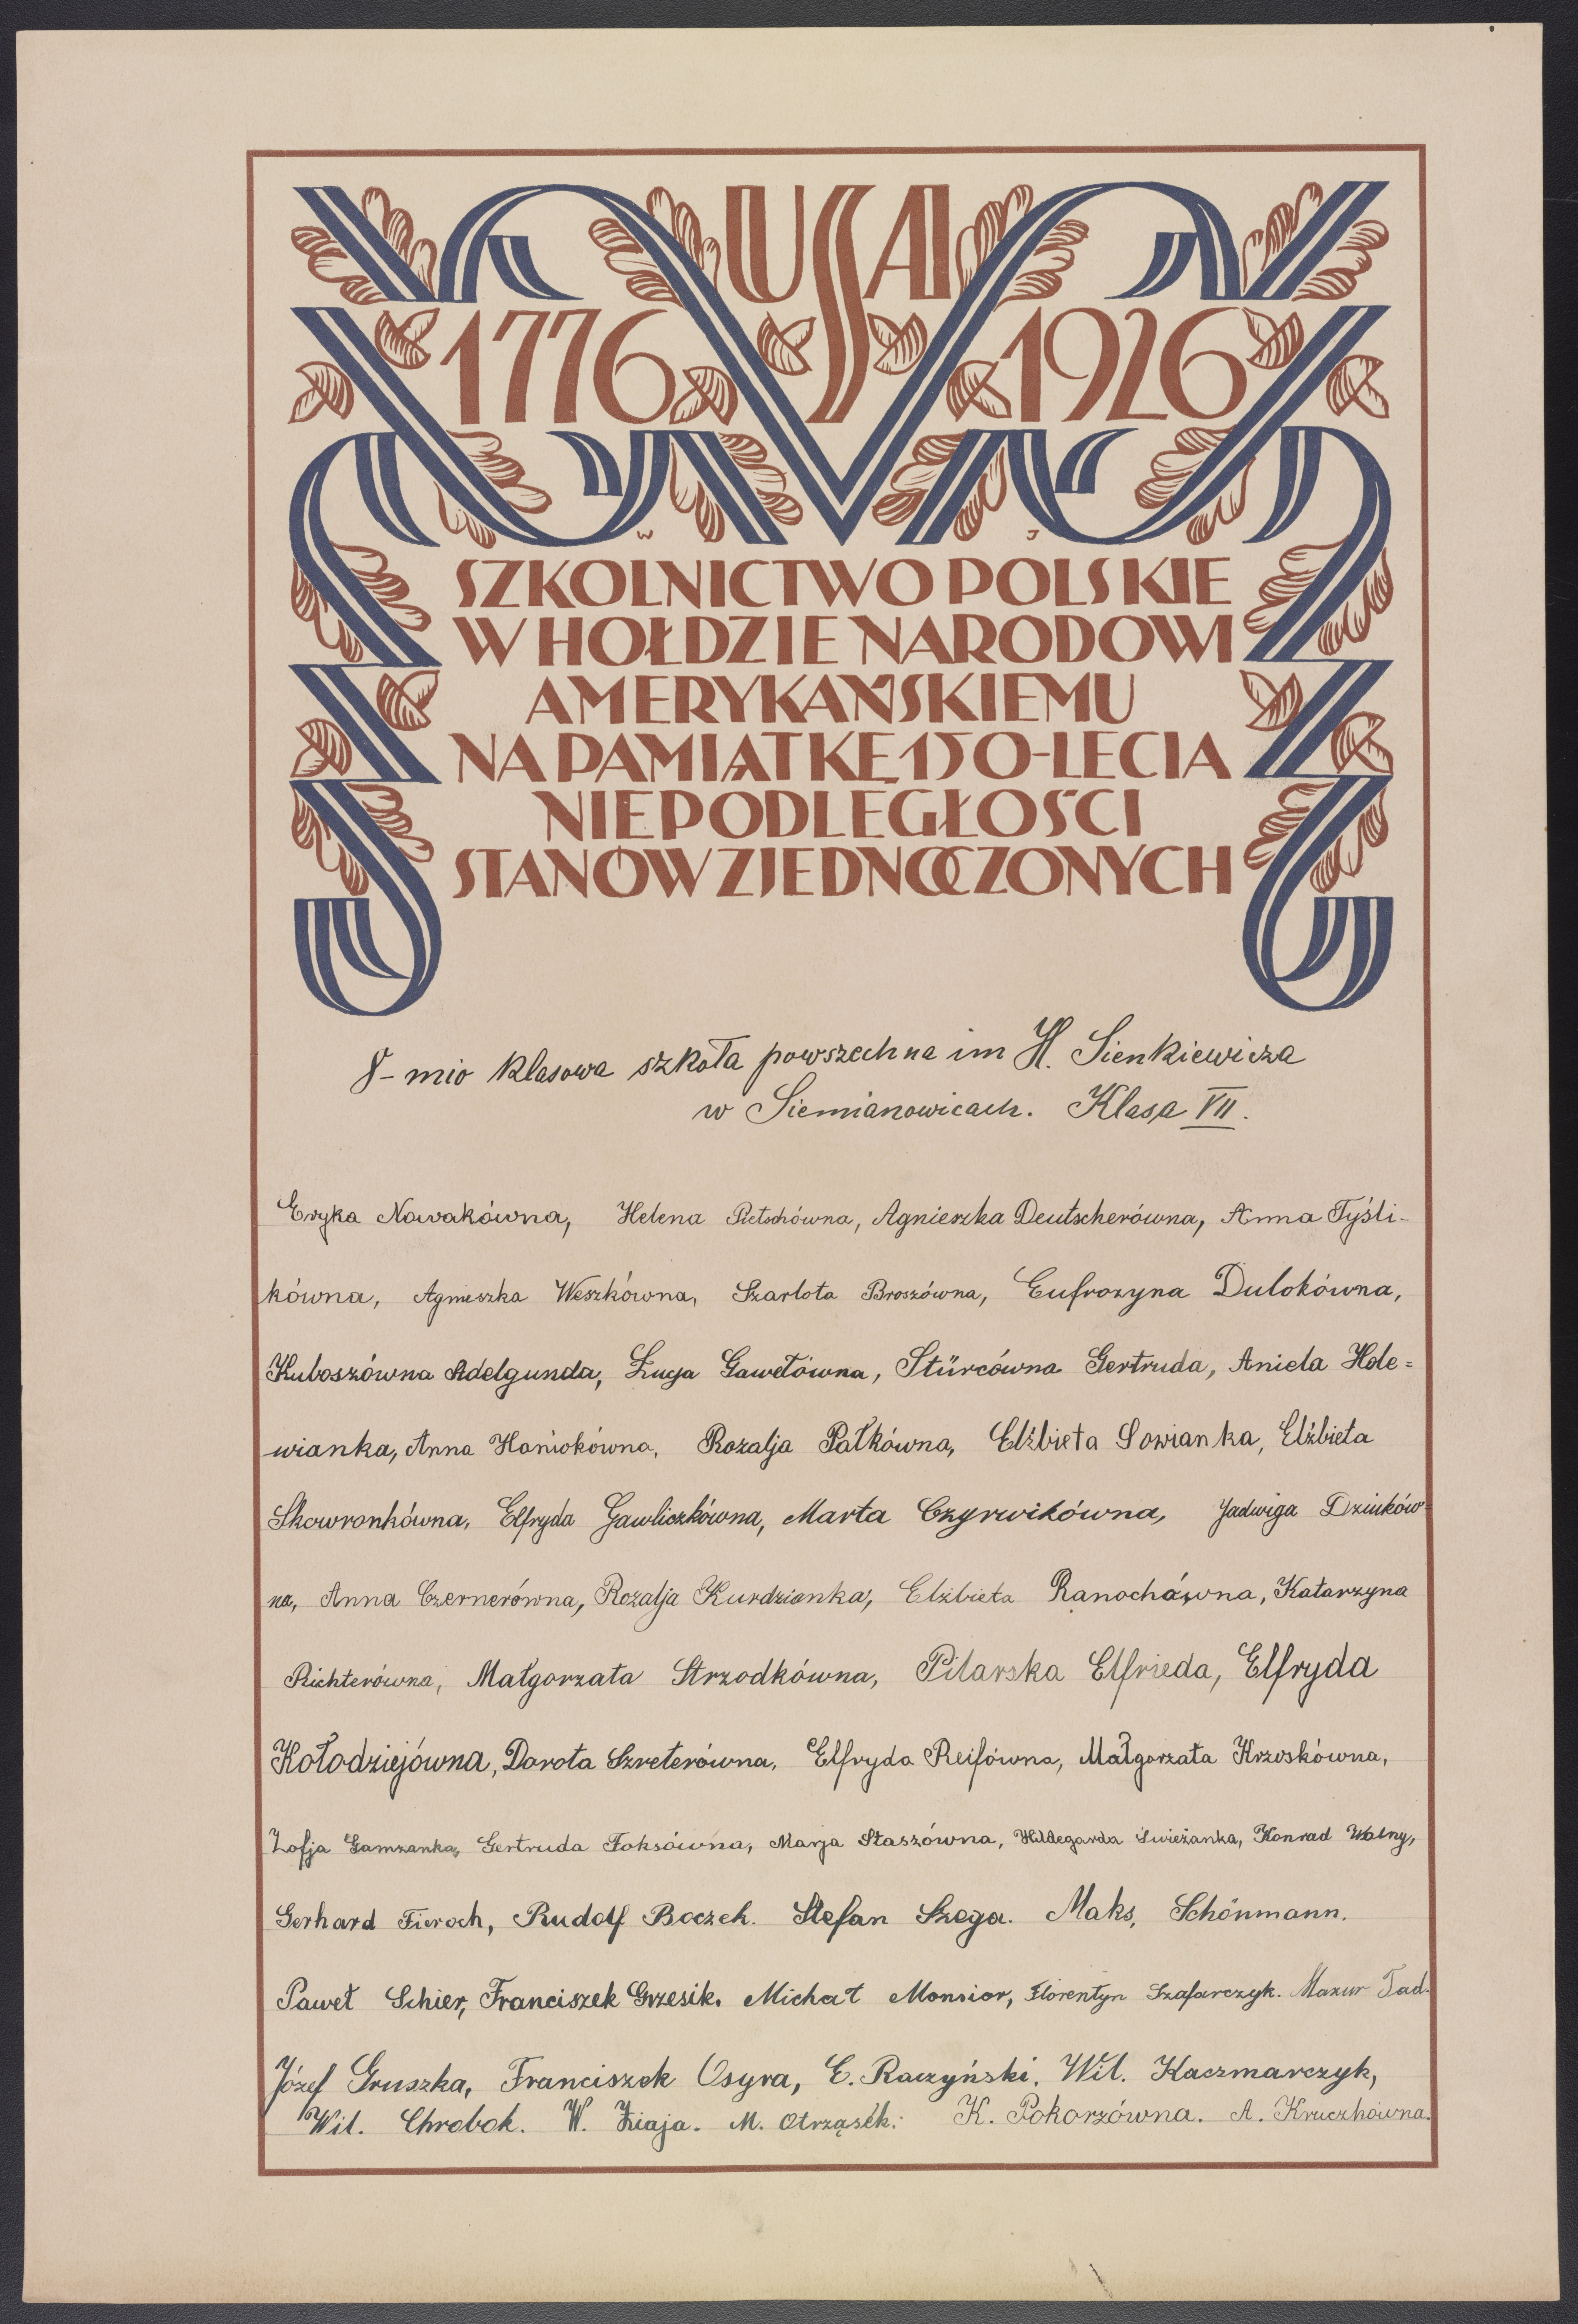 USA
1776 1926
W J
SZKOLNICTWO POLSKIE
W HOŁDZIE NARODOWI
AMERYKAŃSKIEMU
NA PAMIĄTKĘ 150-LECIA
NIEPODLEGŁOŚCI
STANÓW ZJEDNOCZONYCH
8-mio klasowa szkoła powszechna im H. Sienkiewicza
w Siemianowicach. Klasa VII.
Eryka Nowakówna, Helena Pietschówna, Agnieszka Deutscherówna, Anna Tyśli-
kówna, Agnieszka Weszkówna, Szarlota Broszówna, Eufrozyna Dulokówna,
Kuboszówna Adelgunda, Łucja Gawełówna, Stürcówna Gertruda, Aniela Hole=
wianka, Anna Hańiokówna, Rozalja Pałkówna, Elżbieta Sowianka, Elżbieta
Skowronkówna, Elfryda Gawliczkówna, Marta Czyrwikówna, Jadwiga Dziuków-
na, Anna Czernerówna, Rozalja Kurdzianka, Elżbieta Ranochówna, Katarzyna
Richterówna, Małgorzata Strzodkówna, Pilarska Elfrieda, Elfryda
Kołodziejówna, Dorota Szreterówna, Elfryda Reifówna, Małgorzata Krzoskówna,
Zofja Gamzanka, Gertruda Foksówna, Marja Staszówna, Hildegarda Świeżanka, Konrad Walny,
Gerhard Fieroch, Rudolf Boczek. Stefan Szega. Maks, Schönmann.
Paweł Schier, Franciszek Grzesik. Michał Monsior, Florentyn Szafarczyk. Mazur Tad.
Józef Gruszka, Franciszek Osyra, E. Raczyński. Wil. Kaczmarczyk,
Wil. Chrobok. W. Ziaja. M. Otrząsek. K. Pokorzówna. A. Kruczkówna.